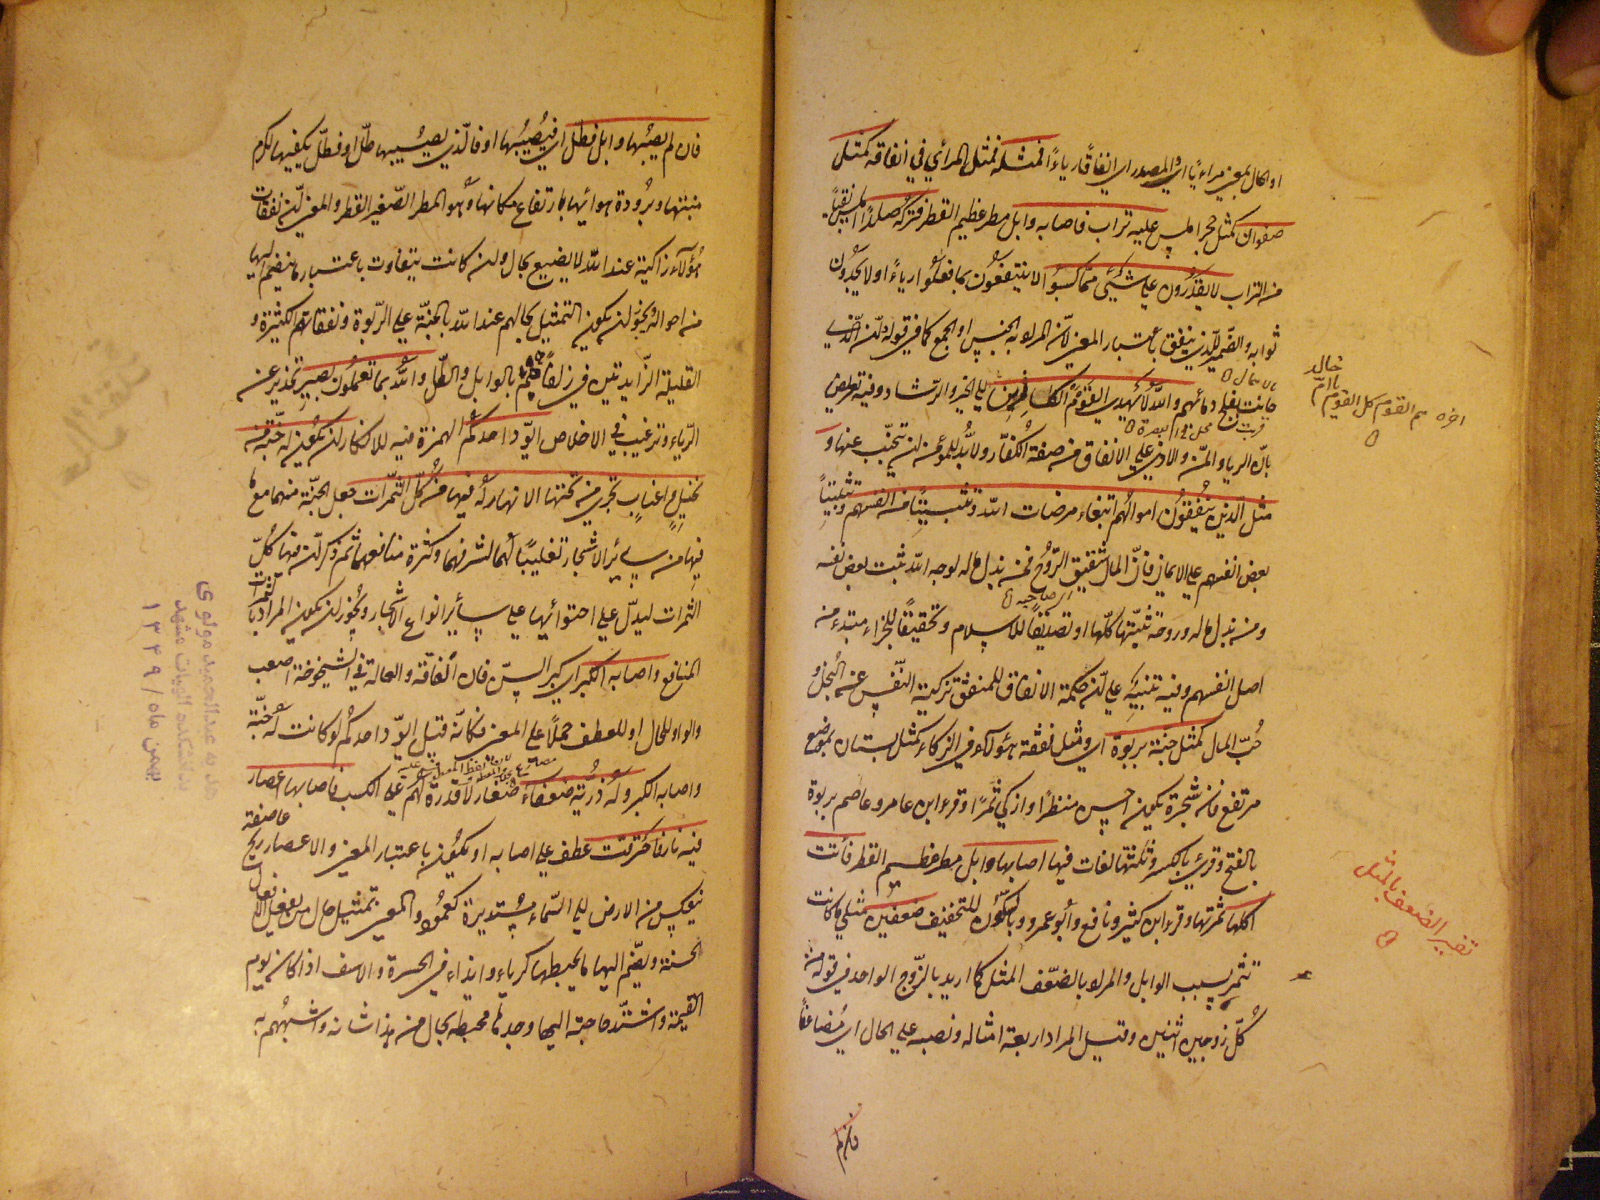 او الحال بمعنى مراءيا اى او المصدر اى انفاقا رياء فمثله فمثل المرائي في انفاقه كمثل
صفوان كمثل حجر املس عليه تراب فاصابه وابل مطر عظيم القطر فتركه صلدا املس نقيا
من التراب لا يقدرون على شئ مما كسبوا لا ينتفعون بما فعلوا رياء او لا يجدون
ثوابه والضمير للذي ينفق باعتبار المعنى لان المراد به الجنس او الجمع كما في قوله ان الذي
حانت بفلج دماؤهم والله لا يهدي القوم الكافرين الى الخير والرشاد وفيه تعريض
بان الريا والمن والاذى على الانفاق من صفة الكفار ولا بد للمؤمن ان يتجنب عنها و
مثل الذين ينفقون اموالهم ابتغاء مرضات الله وتثبيتا من انفسهم وتثبيتا
بعض انفسهم على الايمان فان المال شقيق الروح فمن بذل ماله لوجه الله ثبت بعض نفسه
ومن بذل ماله وروحه ثبتها كلها او تصديقا للاسلام وتحقيقا للجزاء مبتدء من
اصل انفسهم وفيه تنبيه على ان حكمة الانفاق للمنفق تزكية النفس عن البخل و
حب المال كمثل جنة بربوة اى ومثل نفقة هؤلاء في الزكاء كمثل بستان بموضع
مرتفع فان شجره يكون احسن منظرا وازكى ثمرا وقرء ابن عامر وعاصم بربوة
بالفتح وقرئ بالكسر وثلثتها لغات فيها اصابها وابل مطر عظيم القطر فاتت
اكلها ثمرتها وقرء ابن كثير ونافع وابو عمرو بالسكون للتخفيف ضعفين مثلي ما كانت
تثمر بسبب الوابل والمراد بالضعف المثل كما اريد بالزوج الواحد في قوله من
كل زوجين اثنين وقيل المراد اربعة امثاله ونصبه على الحال اى مضاعفا
فان لم
اخره هم القوم كل القوم يا ام خالد
تفسير الضعف بالمثل
فان لم يصبها وابل فطل اى فيصيبها او فالذي يصيبها طل او فطل يكفيها لكرم
منبتها وبرودة هوائها لارتفاع مكانها وهو المطر الصغير القطر والمعنى ان نفقات
هؤلاء زاكية عند الله لا يضيع بحال وان كانت يتفاوت باعتبار ما ينضم اليها
من احواله ويجوز ان يكون التمثيل لحالهم عند الله بالجنة على الربوة ونفقاتهم الكثيرة و
القليلة الزايدتين في زلفاهم بالوابل والطل والله بما تعملون بصير تحذير عن
الرياء وترغيب في الاخلاص ايود احدكم الهمزة فيه للانكار ان يكون له جنة من
نخيل واعناب تجري من تحتها الانهار له فيها من كل الثمرات جعل الجنة منهما مع ما
فيها من سائر الاشجار تغليبا لهما لشرفهما وكثرة منافعهما ثم ذكر ان فيها كل
الثمرات ليدل على احتوائها على سائر انواع الاشجار ويجوز ان يكون المراد بالثمرات
المنافع واصابه الكبر اى كبر السن فان الفاقة والعالة في الشيخوخة اصعب
والواو للحال او للعطف حملا على المعنى فكانه قيل ايود احدكم لو كانت له جنة
واصابه الكبر وله ذرية ضعفاء صغار لا قدرة لهم على الكسب فاصابها اعصار
فيه نار فاحترقت عطف على اصابه او تكون باعتبار المعنى والاعصار ريح عاصفة
ينعكس من الارض الى السماء مستديرة كعمود والمعنى تمثيل حال من يفعل الافعال
الحسنة ويضم اليها ما يحبطها كرياء وايذاء في الحسرة والاسف اذا كان يوم
القيمة واشتد حاجته اليها وجدها محبطة بحال من هذا شانه واشبههم به
عبدالحمید مولوی
دانشکده الهیات مشهد
بهمن ماه / ۱۳۴۹